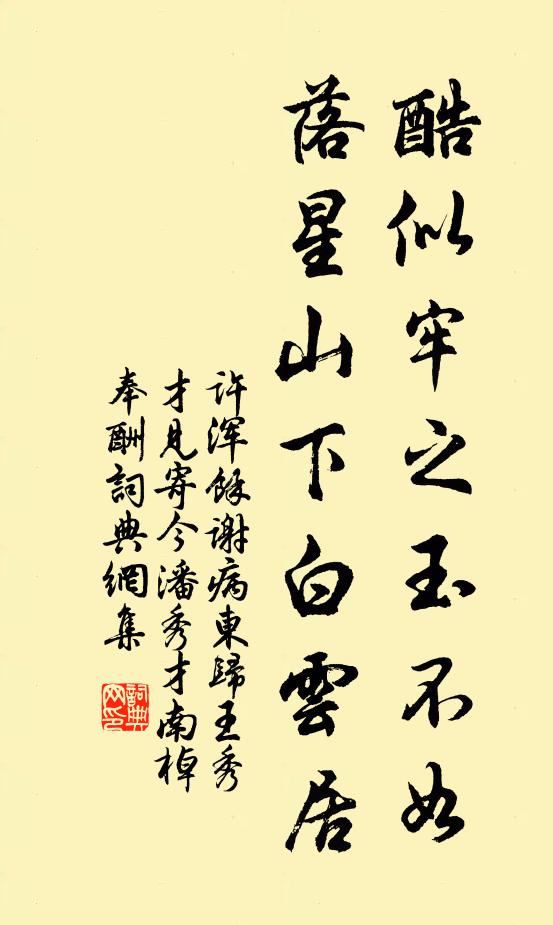 酷似牢之玉不如
落星山下白雲居
许浑馀谢病東歸王秀
才見寄今潘秀才南棹
奉酬詞典網集
詞典
网印